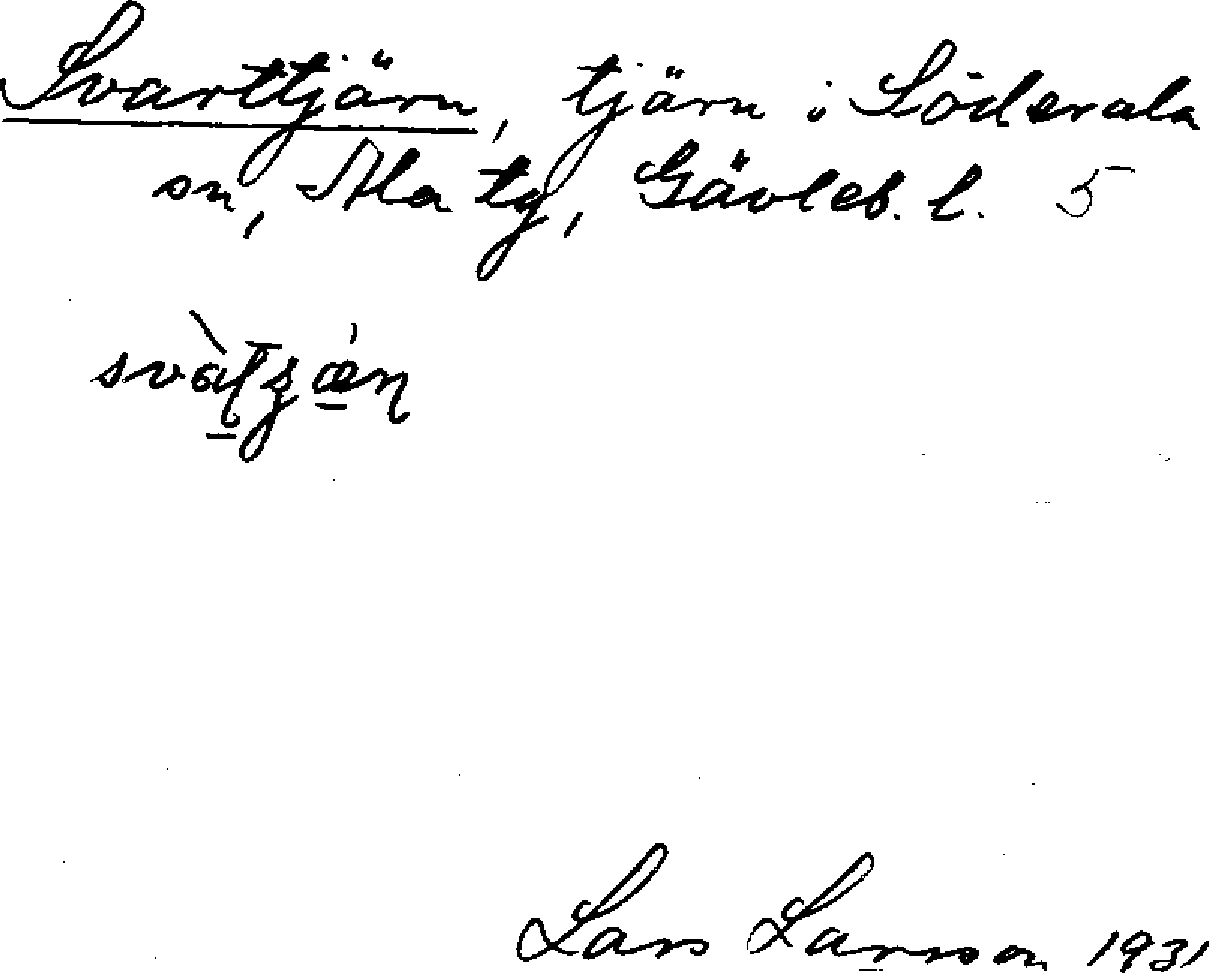 Svarttjärn, tjärn i Söderala
sn, Ala tg, Gävleb. l. 5
Lars Larsson 1931